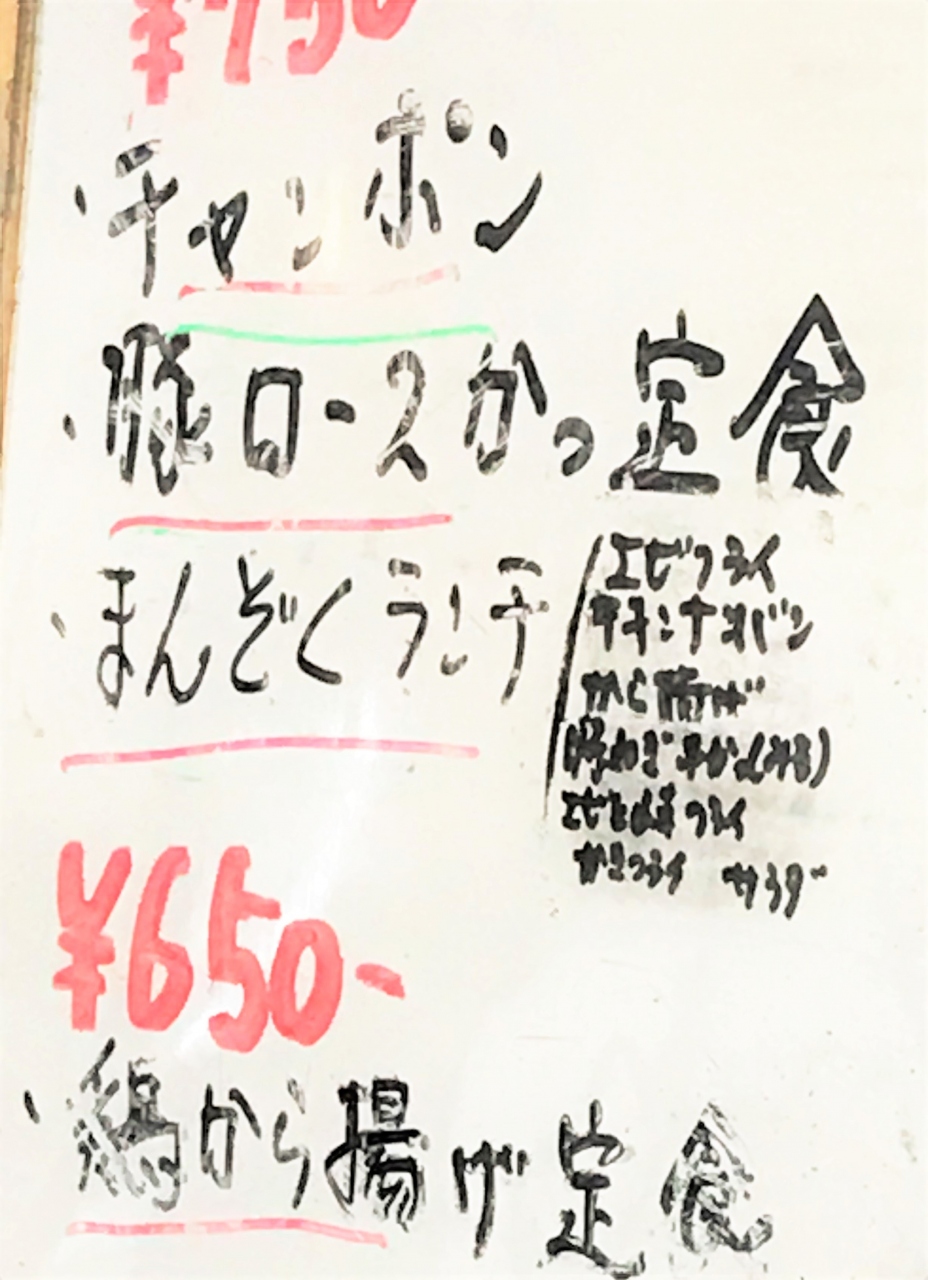 ¥750
・チャンポン
・豚ロースかつ定食
・まんぞくランチ
エビフライ
チキンナンバン
から揚げ
エビと白身フライ
かきフライ サラダ
¥650-
・鶏から揚げ定食